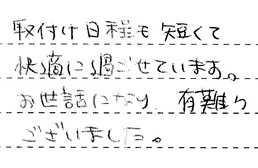 取付け日程も短くて
快適に過ごせています。
お世話になり 有難う
ございました。